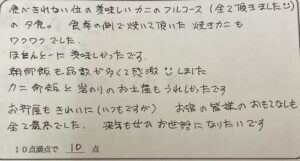 食べきれない位の美味しいカニのフルコース（全て頂きました☺）
の夕食。食事の側で焼いて頂いた焼きカニも
ワクワクでした。
ほんと〜に美味しかったです。
朝御飯も品数が多くて感激☺しました
カニ御飯と岩のりのお土産もうれしかったです
お部屋もきれいに（いつもですが） お宿の皆様のおもてなしも
全て最高でした。来年もぜひお世話になりたいです
10点満点で 10 点